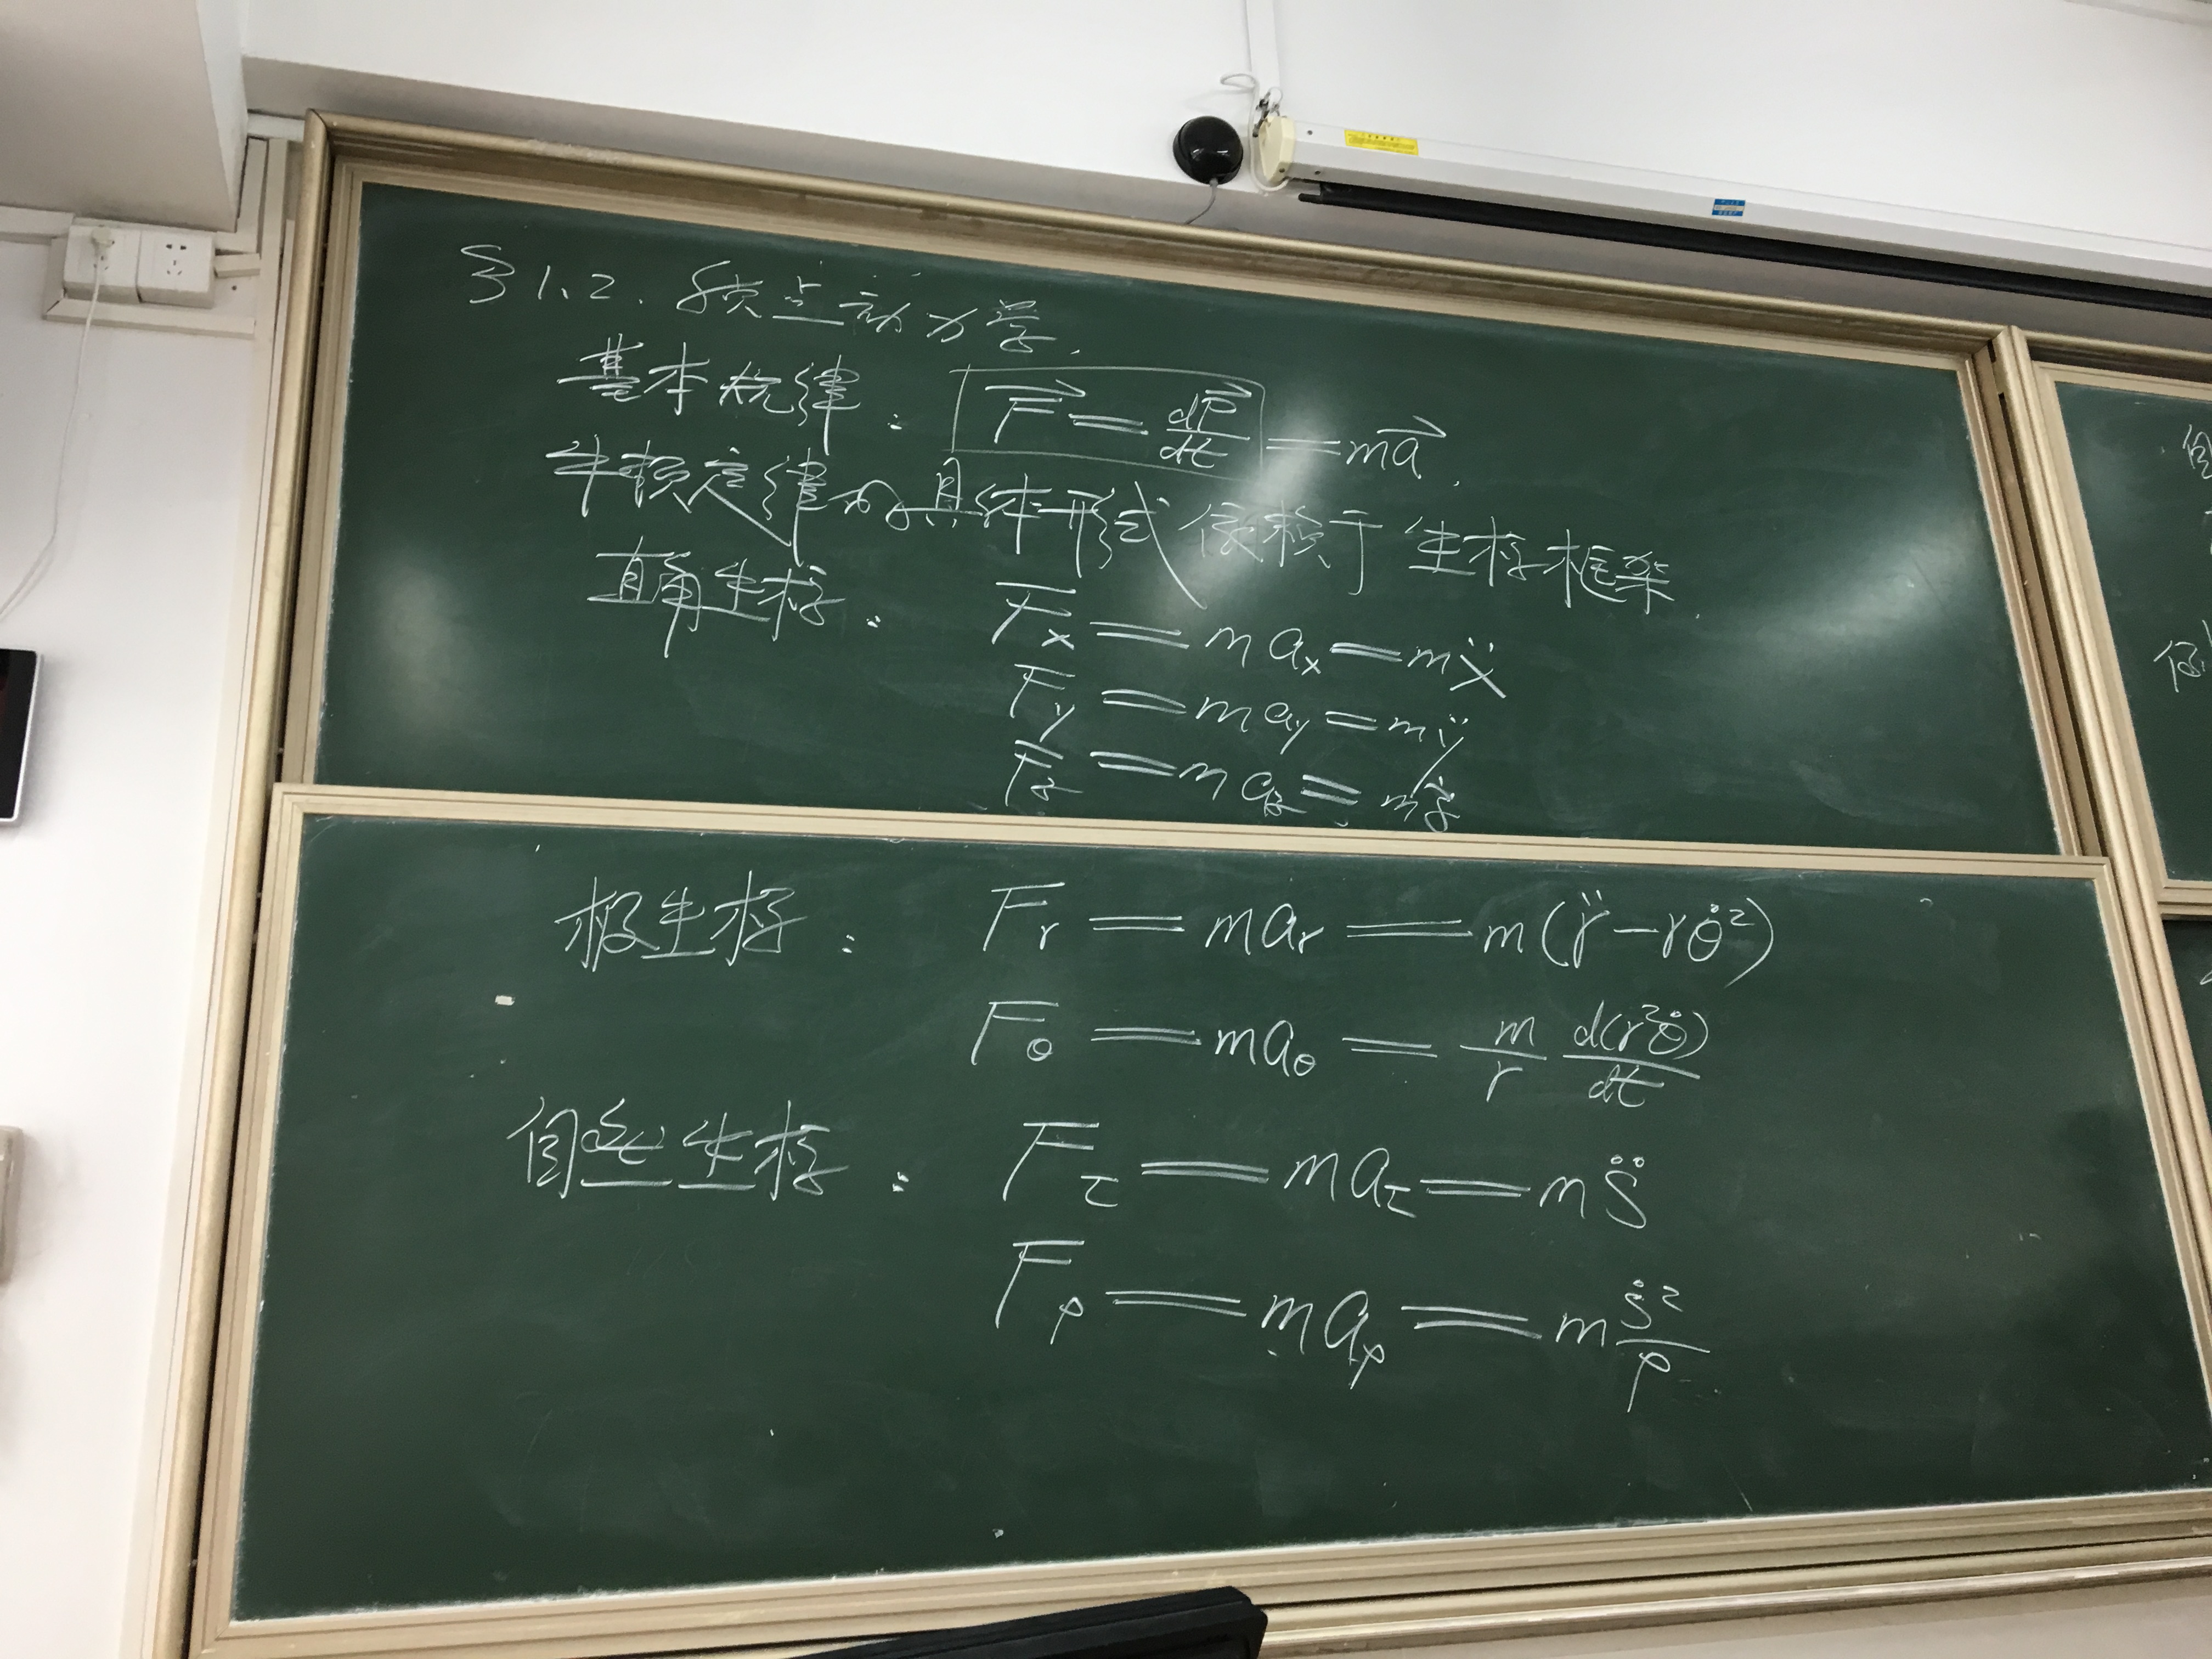 §1.2. 质点动力学.
基本规律: F⃗ = dP⃗/dt = ma⃗.
牛顿定律的具体形式依赖于坐标框架.
直角坐标: Fx = max = mẍ
Fy = may = mÿ
Fz = maz = mz̈
极坐标: Fr = mar = m(r̈ - rθ̇²)
Fθ = maθ = m/r d(r²θ̇)/dt
自然坐标: Fτ = maτ = ms̈
Fρ = maρ = m ṡ²/ρ